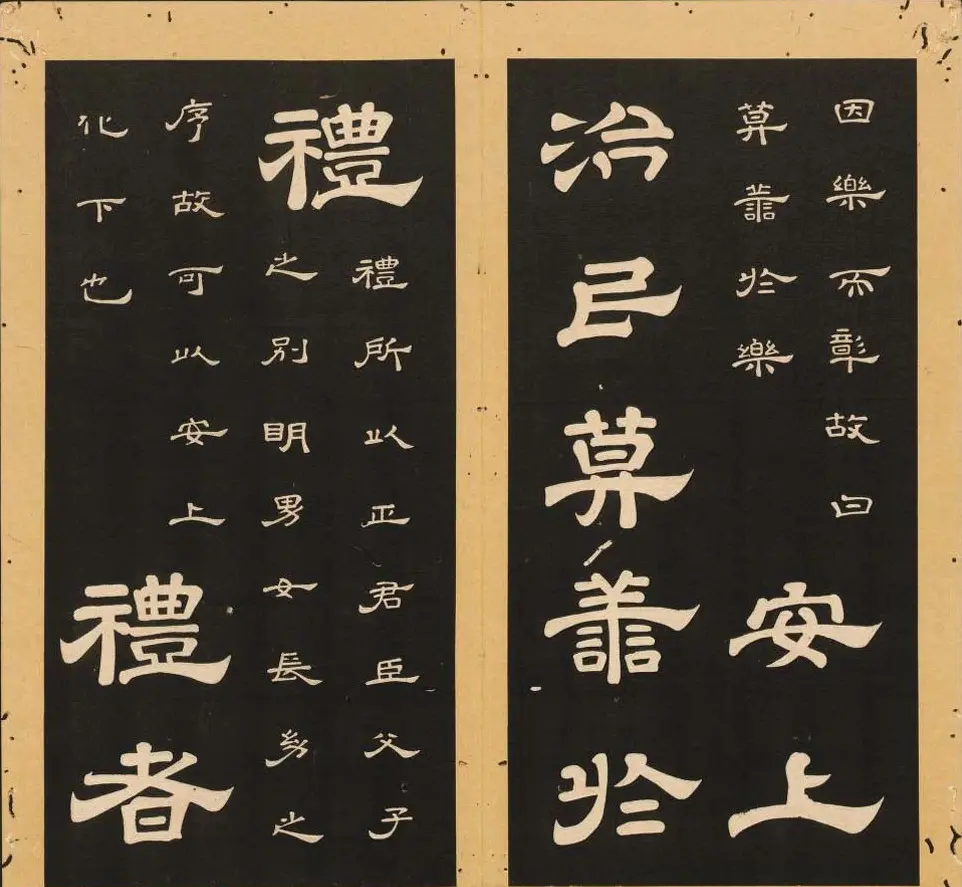 因樂而彰故曰
莫譱於樂
安上
治民莫譱於
禮
禮所以正君臣父子
之別眀男女長幼之
序故可以安上
化下也
禮者